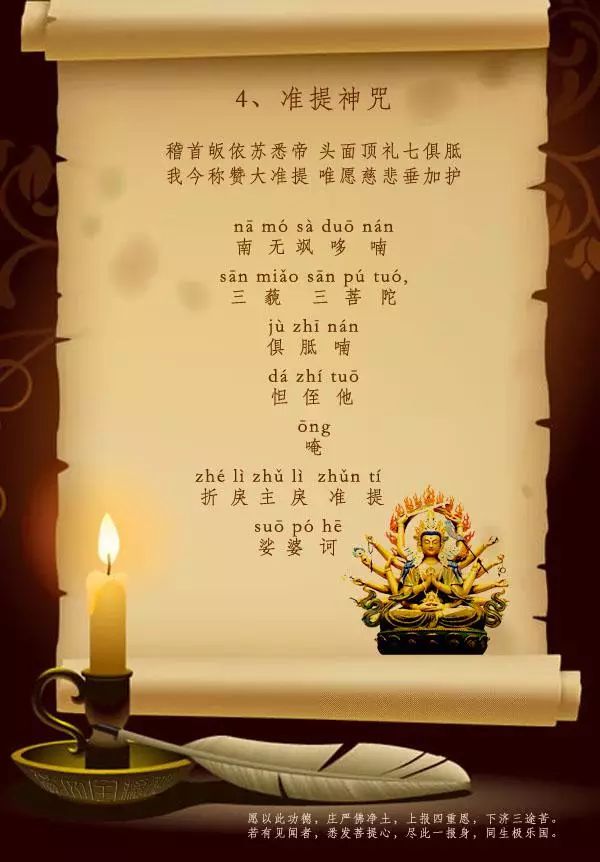 4、准提神咒
稽首皈依苏悉帝 头面顶礼七俱胝
我今称赞大准提 唯愿慈悲垂加护
nā mó sà duō nán
南 无 飒 哆 喃
sān miǎo sān pú tuó,
三 藐 三 菩 陀
jù zhī nán
俱 胝 喃
dá zhí tuō
怛 侄 他
ōng
唵
zhé lì zhǔ lì zhǔn tí
折 戾 主 戾 准 提
suō pó hē
娑 婆 诃
愿以此功德，庄严佛净土，上报四重恩，下济三途苦。
若有见闻者，悉发菩提心，尽此一报身，同生极乐国。